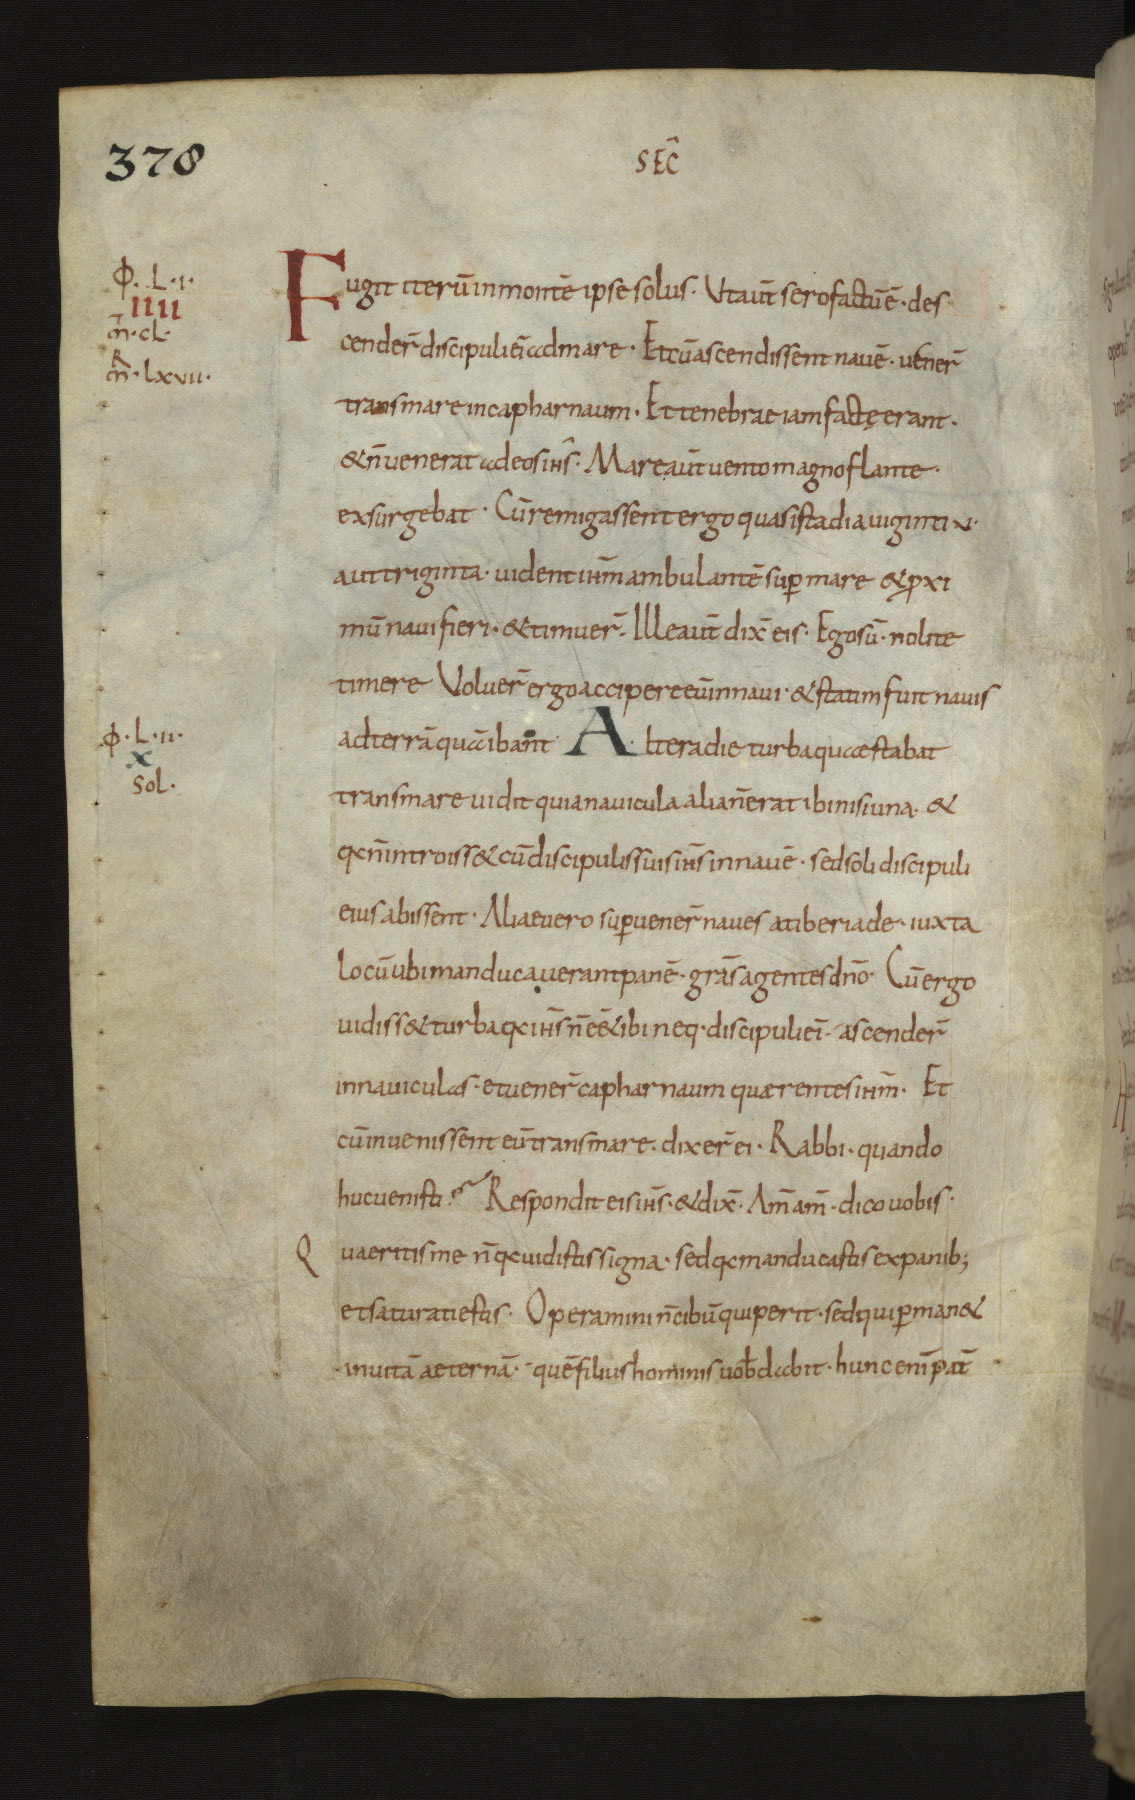 378
SEC̄
Φ. L. I.
IIII
m̄. cL.
m̄. Lxvii.
Fugit iterū in montē ipse solus. Ut aut̄ sero factū ē. des
cender̄ discipuli eī ad mare. Et cū ascendissent navē. vener̄
trans mare in capharnaum. Et tenebrae iam factę erant.
& n̄ venerat ad eos ih̄s. Mare aut̄ vento magno flante.
exsurgebat. Cū remigassent ergo quasi stadia viginti v.
aut triginta. vident ih̄m ambulantē sup̄ mare & p̄xi
mū navi fieri. & timuer̄. Ille aut̄ dix̄ eis. Ego sū. nolite
timere Voluer̄ ergo accipere eū in navi. & statim fuit navis
ad terrā quā ibant. Altera die turba quae stabat
Φ. L. II.
X
Sol.
trans mare vidit quia navicula alia n̄ erat ibi nisi una. &
qc n̄ introiss& cū discipulis suis ih̄s in navē. sed soli discipuli
eius abissent. Aliae vero sup̄vener̄ naves a tiberiade. iuxta
locū ubi manducaverant panē. grās agentes dn̄o. Cū ergo
vidiss& turba qc ih̄s n̄ eē& ibi neq. discipuli eī. ascender̄
in naviculas. et vener̄ capharnaum quaerentes ih̄m. Et
cū invenissent eū trans mare. dixer̄ ei. Rabbi. quando
huc venisti? Respondit eis ih̄s. & dix̄. Am̄ am̄. dico vobis.
Quaeritis me n̄ qc vidistis signa. sed qc manducastis ex panib;
et saturati estis. Operamini n̄ cibū qui perit. sed qui p̄man&
in vitā aeternā. quē filius hominis vob̄ dabit. hunc enī pat̄